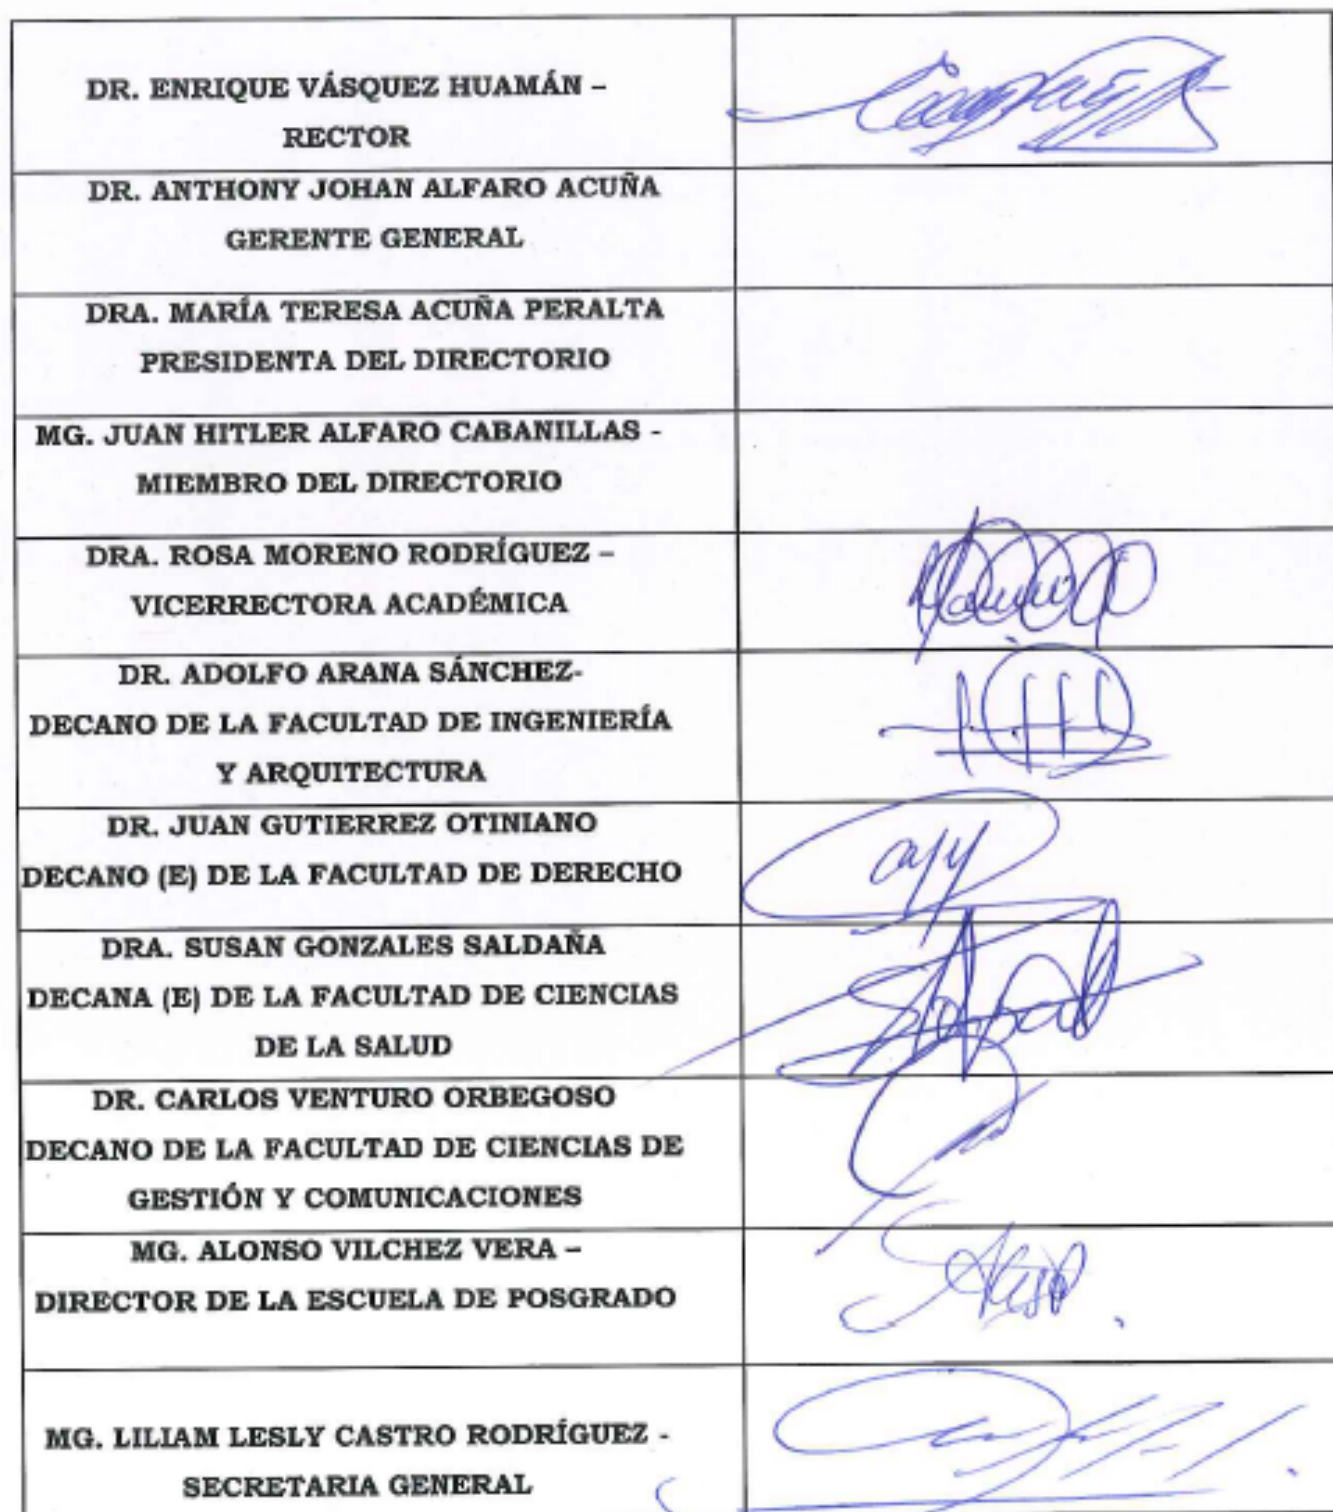 DR. ENRIQUE VÁSQUEZ HUAMÁN –
RECTOR
DR. ANTHONY JOHAN ALFARO ACUÑA
GERENTE GENERAL
DRA. MARÍA TERESA ACUÑA PERALTA
PRESIDENTA DEL DIRECTORIO
MG. JUAN HITLER ALFARO CABANILLAS -
MIEMBRO DEL DIRECTORIO
DRA. ROSA MORENO RODRÍGUEZ –
VICERRECTORA ACADÉMICA
DR. ADOLFO ARANA SÁNCHEZ-
DECANO DE LA FACULTAD DE INGENIERÍA
Y ARQUITECTURA
DR. JUAN GUTIERREZ OTINIANO
DECANO (E) DE LA FACULTAD DE DERECHO
DRA. SUSAN GONZALES SALDAÑA
DECANA (E) DE LA FACULTAD DE CIENCIAS
DE LA SALUD
DR. CARLOS VENTURO ORBEGOSO
DECANO DE LA FACULTAD DE CIENCIAS DE
GESTIÓN Y COMUNICACIONES
MG. ALONSO VILCHEZ VERA –
DIRECTOR DE LA ESCUELA DE POSGRADO
MG. LILIAM LESLY CASTRO RODRÍGUEZ -
SECRETARIA GENERAL